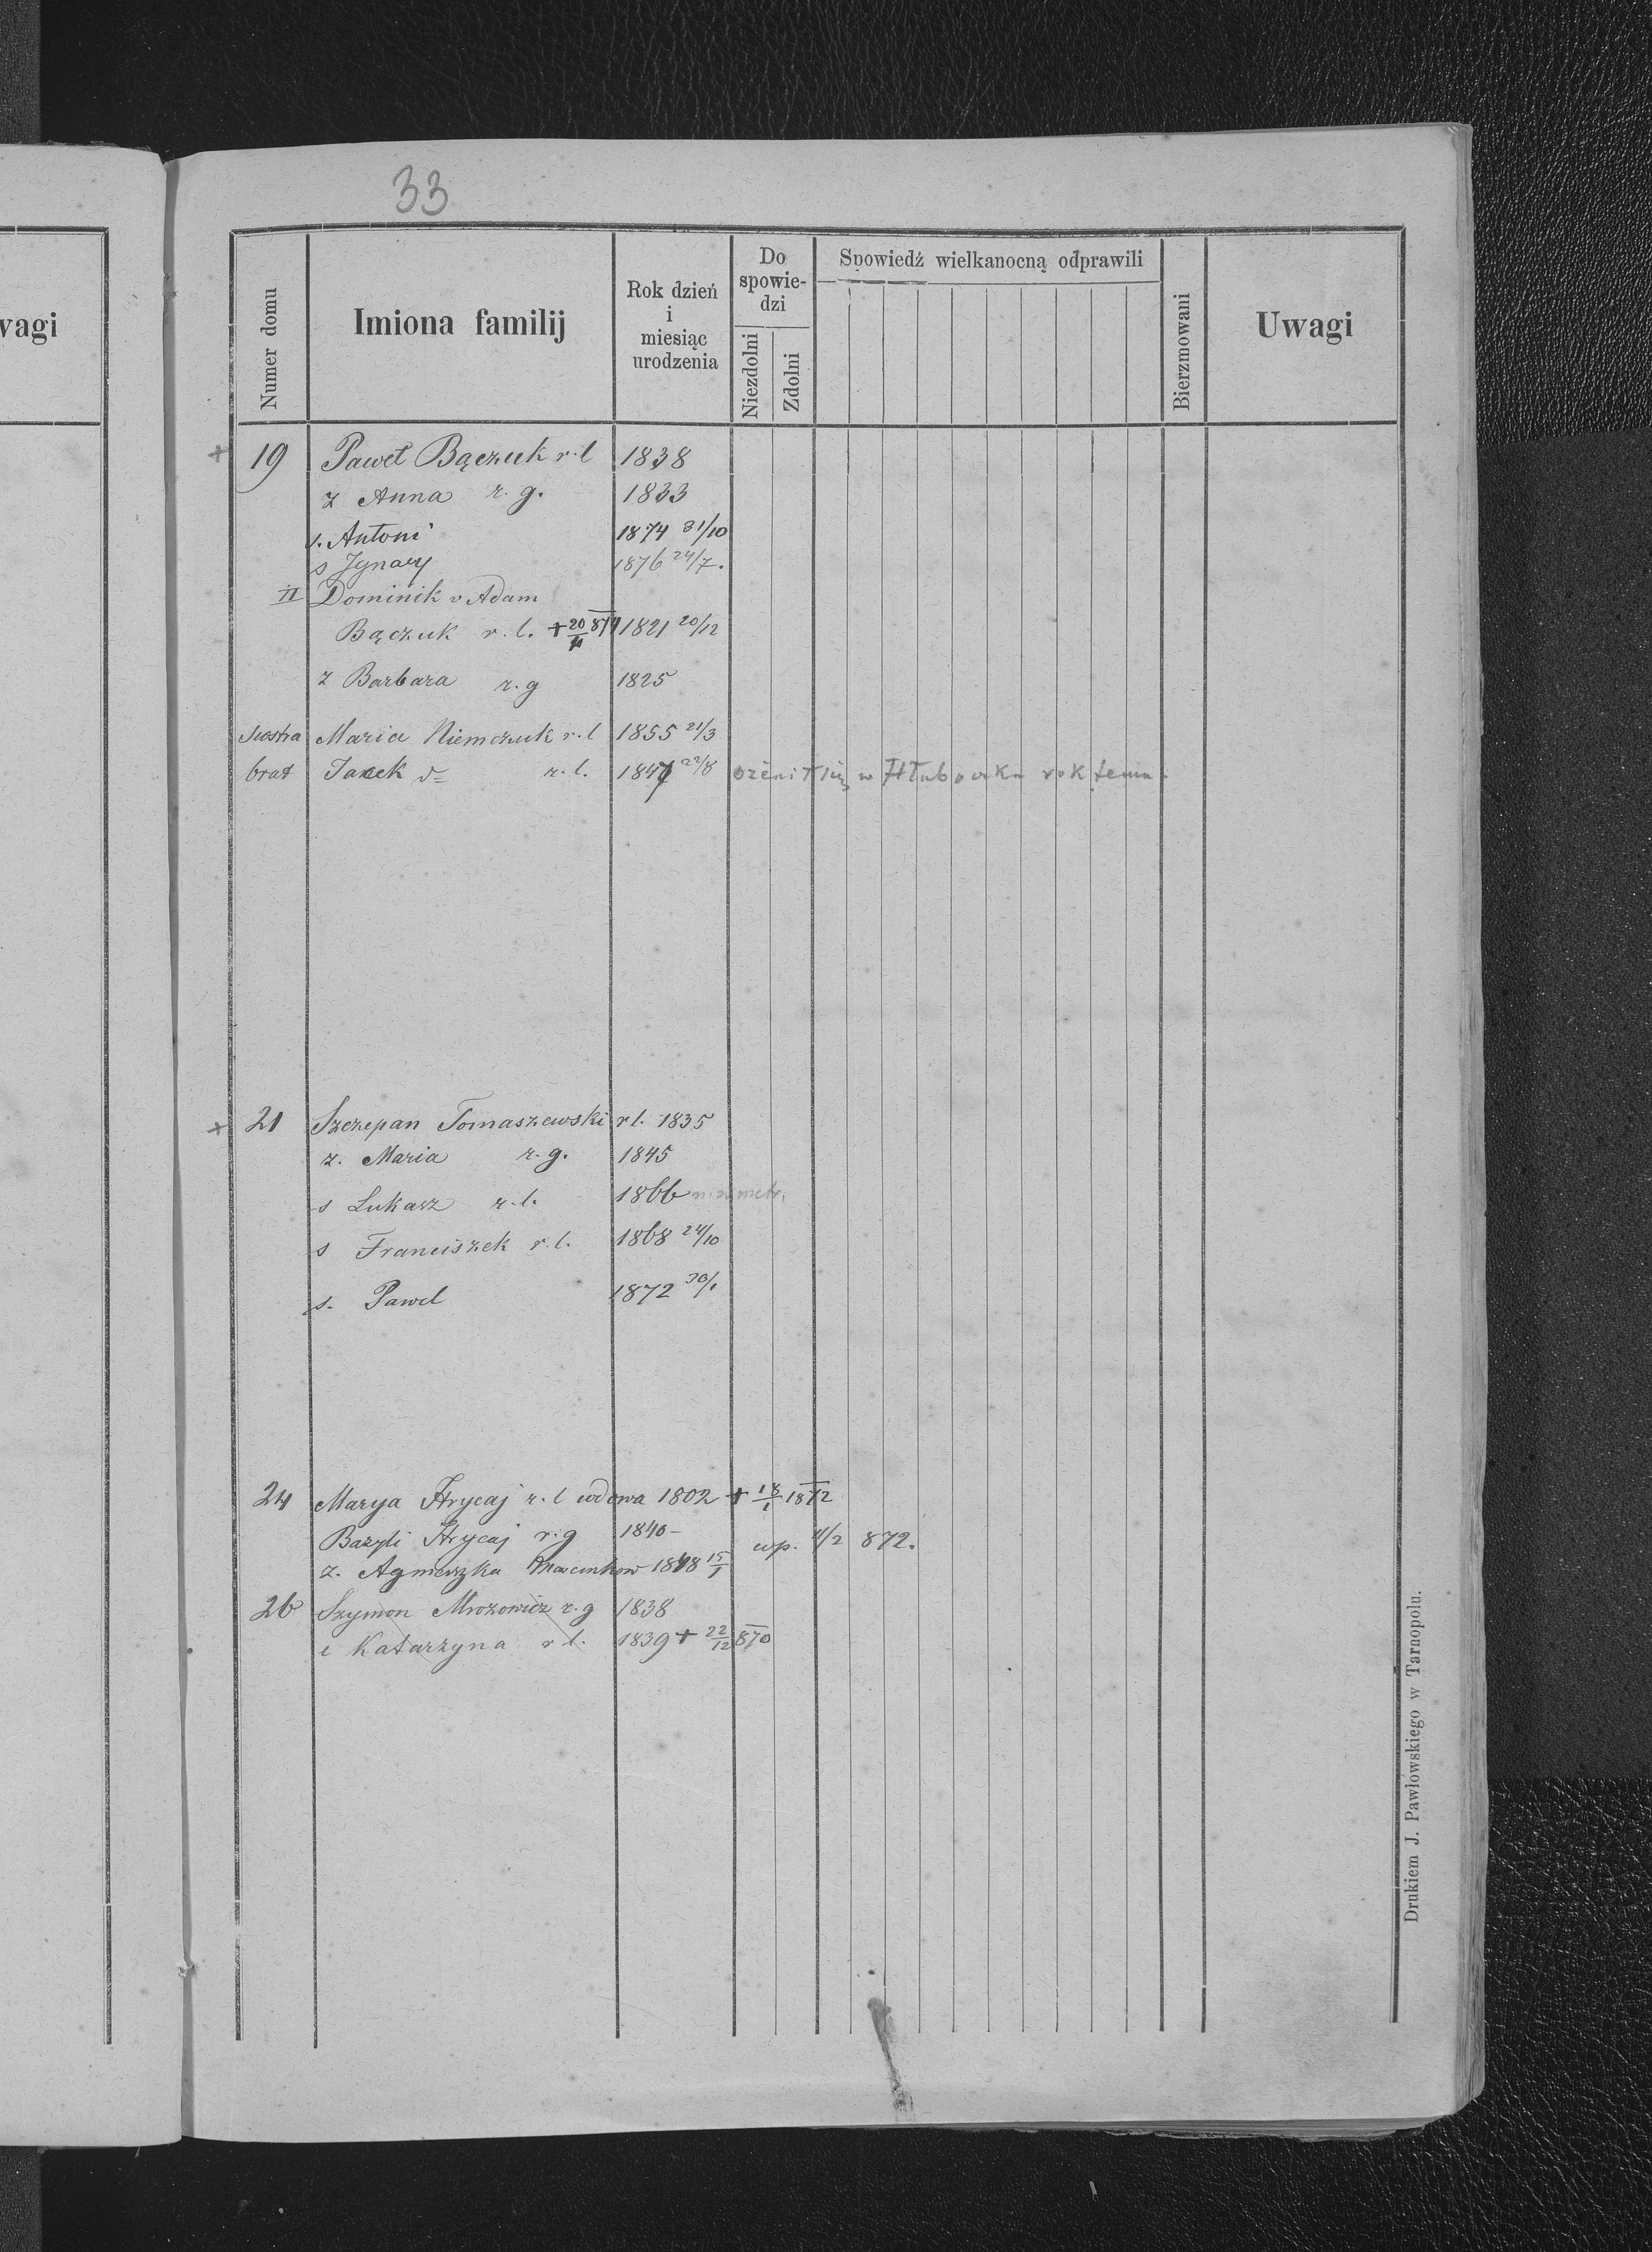 33
wagi
Numer domu
Imiona familij
Rok dzień i miesiąc urodzenia
Do spowiedzi
Niezdolni
Zdolni
Spowiedź wielkanocną odprawili
Bierzmowani
Uwagi
+ 19 Paweł Bączuk r. l 1838
ż Anna r. g. 1833
s. Antoni 1874 31/10
s Ignacy 1876 24/7.
II Dominik v Adam
Bączuk r. l. + 20/11 879 1821 20/12
ż Barbara r. g 1825
siostra Maria Niemczuk r. l 1855 21/3
brat Jacek v= r. l. 1847 22/8 ożenił się w Hłuboczku rok temu.
+ 21 Szczepan Tomaszewski r l. 1835
ż. Maria r. g. 1845
s Łukasz r. l. 1866 metr.
s Franciszek r. l. 1868 24/10
s. Paweł 1872 30/1
24 Marya Hrycaj r. l wdowa 1802 + 18/1 1872
Bazyli Hrycaj r. g 1840 –
ż. Agnieszka Marcinkow 1848 15/1 wp. 11/2 872.
26 Szymon Mrozowicz r. g 1838
i Katarzyna r l. 1839 + 22/12 870
Drukiem J. Pawłowskiego w Tarnopolu.